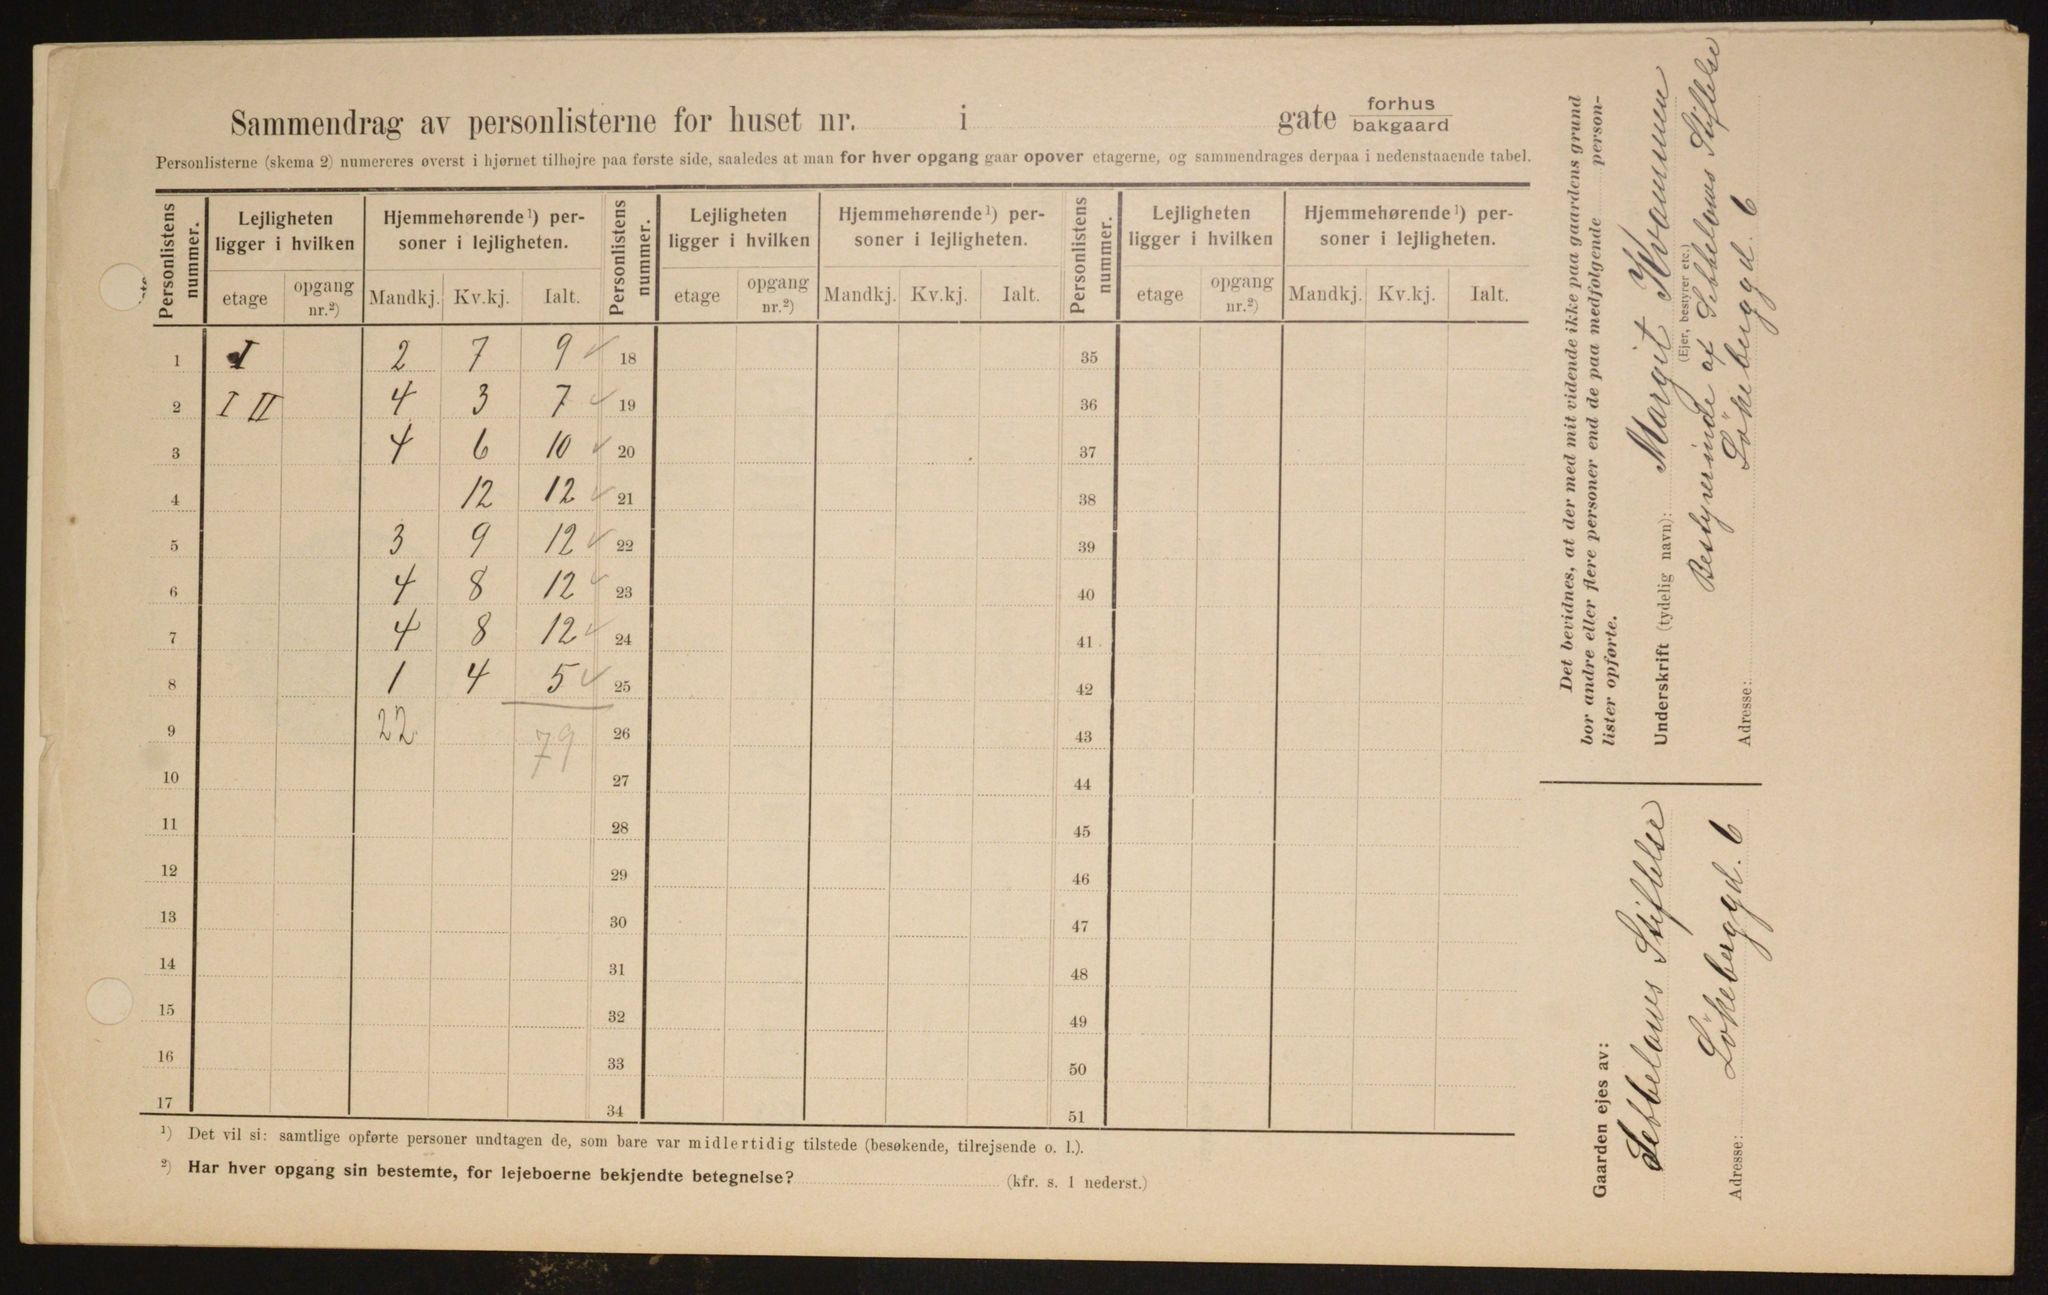 Sammendrag av personlisterne for huset nr. i gate forhus
bakgaard
Personlisterne (skema 2) numereres øverst i hjørnet tilhøjre paa første side, saaledes at man for hver opgang gaar opover etagerne, og sammendrages derpaa i nedenstaaende tabel.
Personlistens nummer. Lejligheten ligger i hvilken Hjemmehørende 1) personer i lejligheten. Personlistens nummer. Lejligheten ligger i hvilken Hjemmehørende 1) personer i lejligheten. Personlistens nummer. Lejligheten ligger i hvilken Hjemmehørende 1) personer i lejligheten.
etage opgang nr.2) Mandkj. Kv.kj. Ialt. etage opgang nr.2) Mandkj. Kv.kj. Ialt. etage opgang nr.2) Mandkj. Kv.kj. Ialt.
1 I 2 7 9 18 35
2 I II 4 3 7 19 36
3 4 6 10 20 37
4 12 12 21 38
5 3 9 12 22 39
6 4 8 12 23 40
7 4 8 12 24 41
8 1 4 5 25 42
9 22 79 26 43
10 27 44
11 28 45
12 29 46
13 30 47
14 31 48
15 32 49
16 33 50
17 34 51
1) Det vil si: samtlige opførte personer undtagen de, som bare var midlertidig tilstede (besøkende, tilrejsende o. l.).
2) Har hver opgang sin bestemte, for lejeboerne bekjendte betegnelse? (kfr. s. 1 nederst.)
Det bevidnes, at der med mit vidende ikke paa gaardens grund
bor andre eller flere personer end de paa medfølgende person-
lister opførte.
Underskrift (tydelig navn): Margit Kvamme
(Ejer, bestyrer etc.)
Bestyrerinde af Sebbelows Stiftelse
Adresse: Lökkeberggd. 6
Gaarden ejes av:
Sebbelows Stiftelse
Adresse: Lökkeberggd. 6